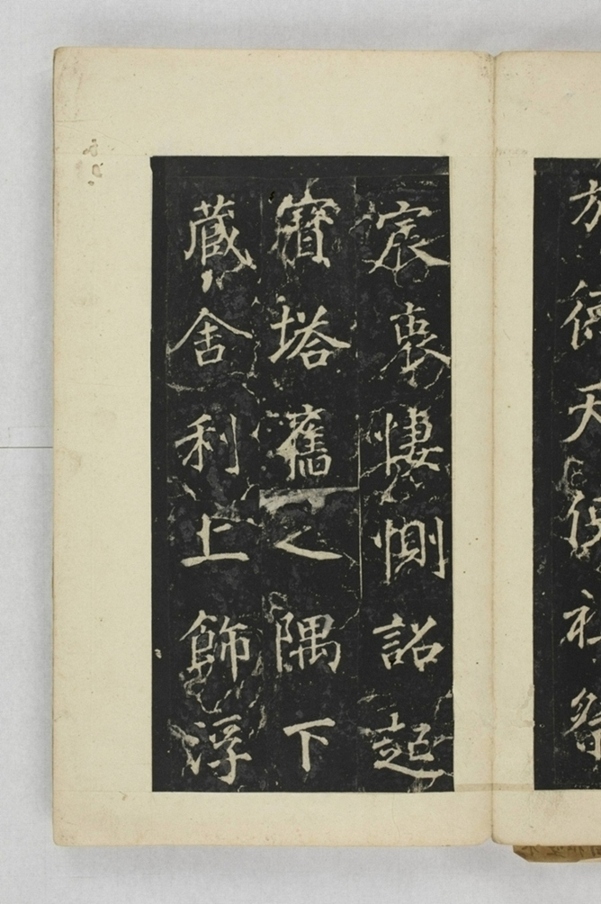 宸衷悽惻詔起
寶塔舊之隅下
藏舍利上飾浮